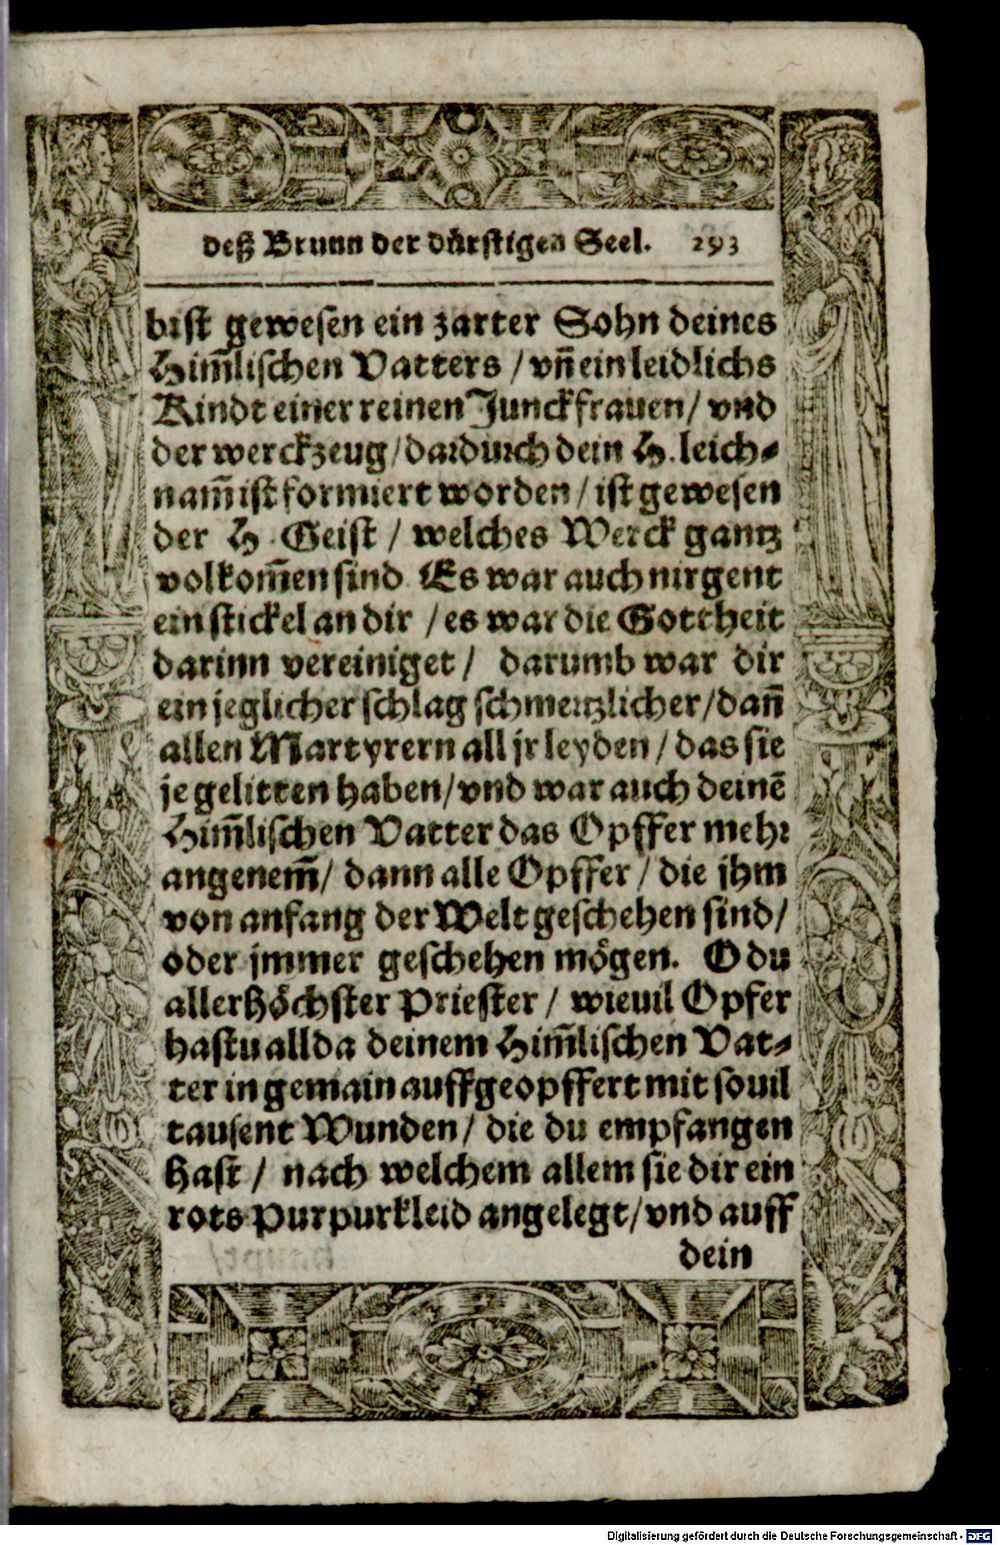 deß Brunn der dürstigen Seel. 293
bist gewesen ein zarter Sohn deines
Him̃lischen Vatters / vñ ein leidlichs
Kindt einer reinen Junckfrauen / vnd
der werckzeug / dardurch dein H. leich-
nam̃ ist formiert worden / ist gewesen
der H. Geist / welches Werck gantz
volkom̃en sind. Es war auch nirgent
ein stickel an dir / es war die Gottheit
darinn vereiniget / darumb war dir
ein jeglicher schlag schmertzlicher / dañ
allen Martyrern all jr leyden / das sie
je gelitten haben / vnd war auch deinē
Him̃lischen Vatter das Opffer mehr
angenem̃ / dann alle Opffer / die jhm
von anfang der Welt geschehen sind /
oder jmmer geschehen mögen. O du
allerhöchster Priester / wieuil Opfer
hastu allda deinem Him̃lischen Vat-
ter in gemain auffgeopffert mit souil
tausent Wunden / die du empfangen
hast / nach welchem allem sie dir ein
rots Purpurkleid angelegt / vnd auff
dein
Digitalisierung gefördert durch die Deutsche Forschungsgemeinschaft - DFG